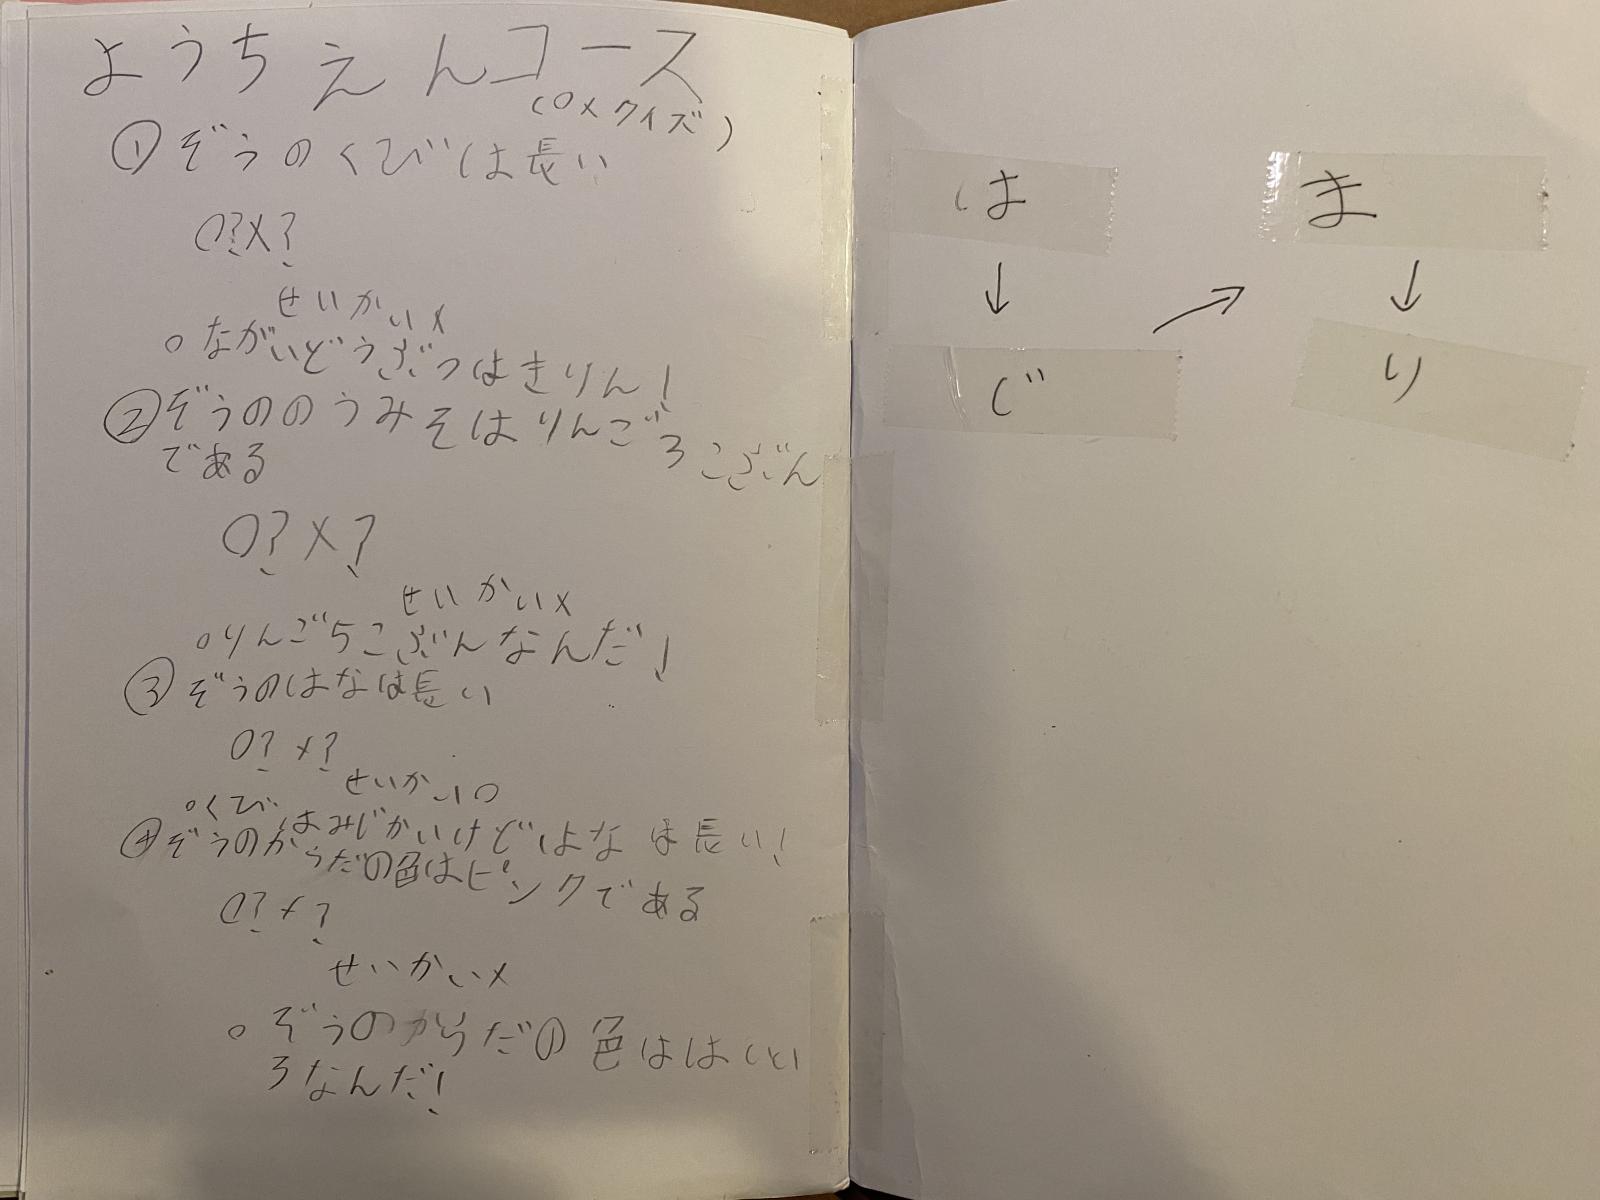 ようちえんコース
(○×クイズ)
①ぞうのくびは長い
○?×?
せいかい×
○ながいどうぶつはきりん!
②ぞうののうみそはりんごろこぶん
である
○?×?
せいかい×
○りんご5こぶんなんだ!
③ぞうのはなは長い
○?×?
せいかい○
○くびはみじかいけどはなは長い!
④ぞうのからだの色はピンクである
○?×?
せいかい×
○ぞうのからだの色ははいい
ろなんだ!
は
↓
じ
↗
ま
↓
り